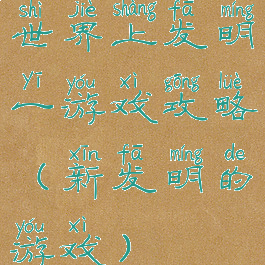 shì jiè shàng fā míng
世界上发明
yī yóu xì gōng lüè
一游戏攻略
xīn fā míng de
（新发明的
yóu xì
游戏）